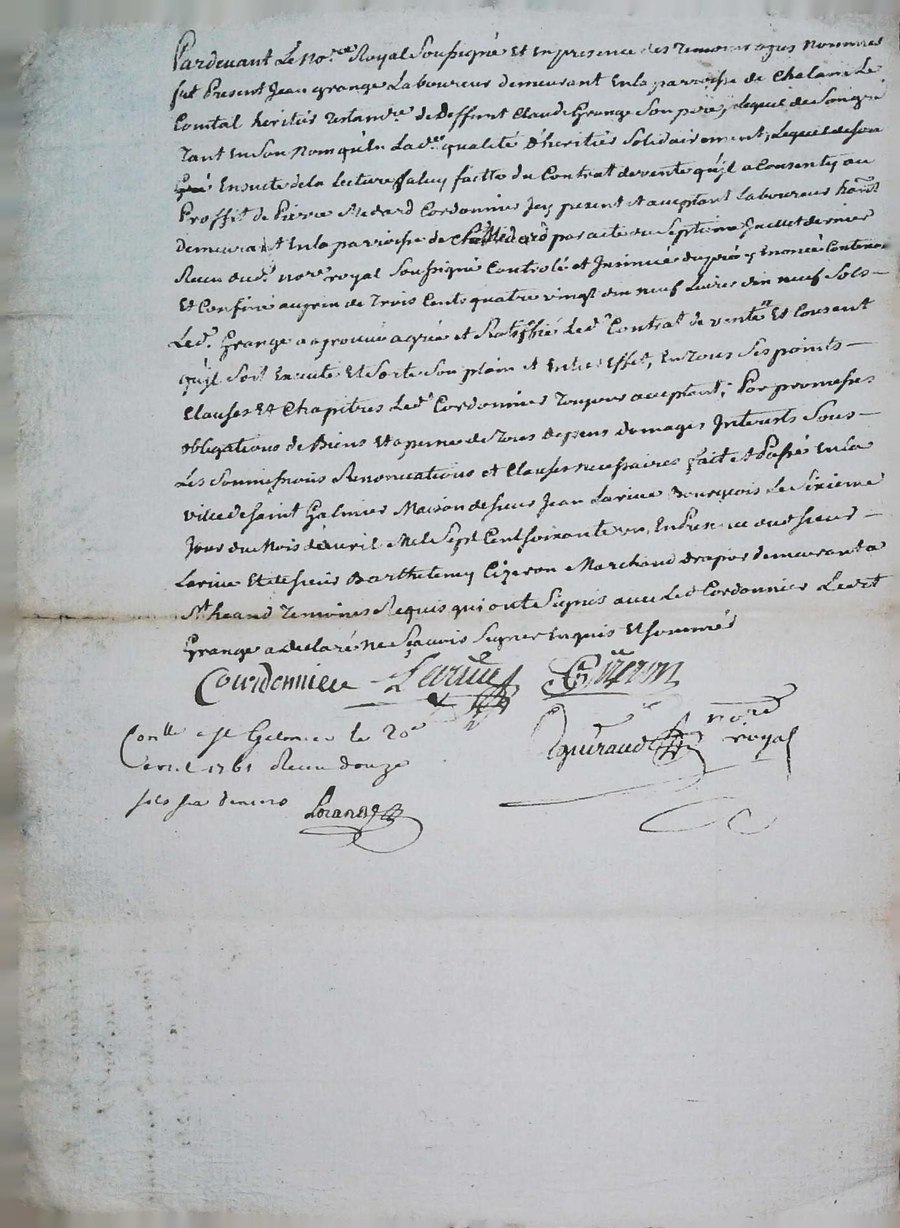 Pardevant Le No.re Royal Soussigné Et En presence des Temoins apres Nommés
fut Present Jean grange Laboureur demeurant En la parroisse de Chalain Le
Comtal heritier Testam.re de deffunt Claude Grange Son pere, Lequel de Son gré
Tant En Son Nom qu'En Lad.e qualité d'heritier Solidairement, Lequel de Son
Gré Ensuite de la Lecture a luy faitte du Contrat de vente qu'jl a Consenty au
Proffit de Pierre Medard Cordonnier Jcy present et acceptant Laboureur
demeurant En la parroisse de Medard par acte du Septieme Juillet dernier
Recu dud.t nore. royal Soussigné Controlé et Jnsinué
Et Confiné au prix de Trois Cents quatre vingt dix neuf Livres dix neuf Sols
Led.t Grange a aprouvé agréé et Ratiffié Led.t Contrat de vente Et Consent
qu'jl Soit Executé Et Sorte Son plain et Entier Effet, En tous Ses points
Clauses Et Chapitres Led.t Cordonnier Toujours acceptant; Par promesses
obligations de Biens Et a peine de Tous depens domages Interests Sous
Les Soumissions Renonciations et Clauses necessaires fait et Passé En la
ville de Saint Galmier Maison de Sieur Jean Larive Bourgeois Le Sixieme
Jour du Mois d'avril Mil Sept Cent Soixante un, En Presence dud.t Sieur
Larive Et de Sieur Barthelemy Cizeron Marchand Drapier demeurant a
St. heand Temoins Requis qui ont Signés avec Led.t Cordonnier Led.t
Grange a declaré ne Sçavoir Signer Enquis Et Sommés
Courdonniere Larive Cizeron
nore
royal
Conlle a st Galmier le 20e
avril 1761 Recu douze
sols six deniers